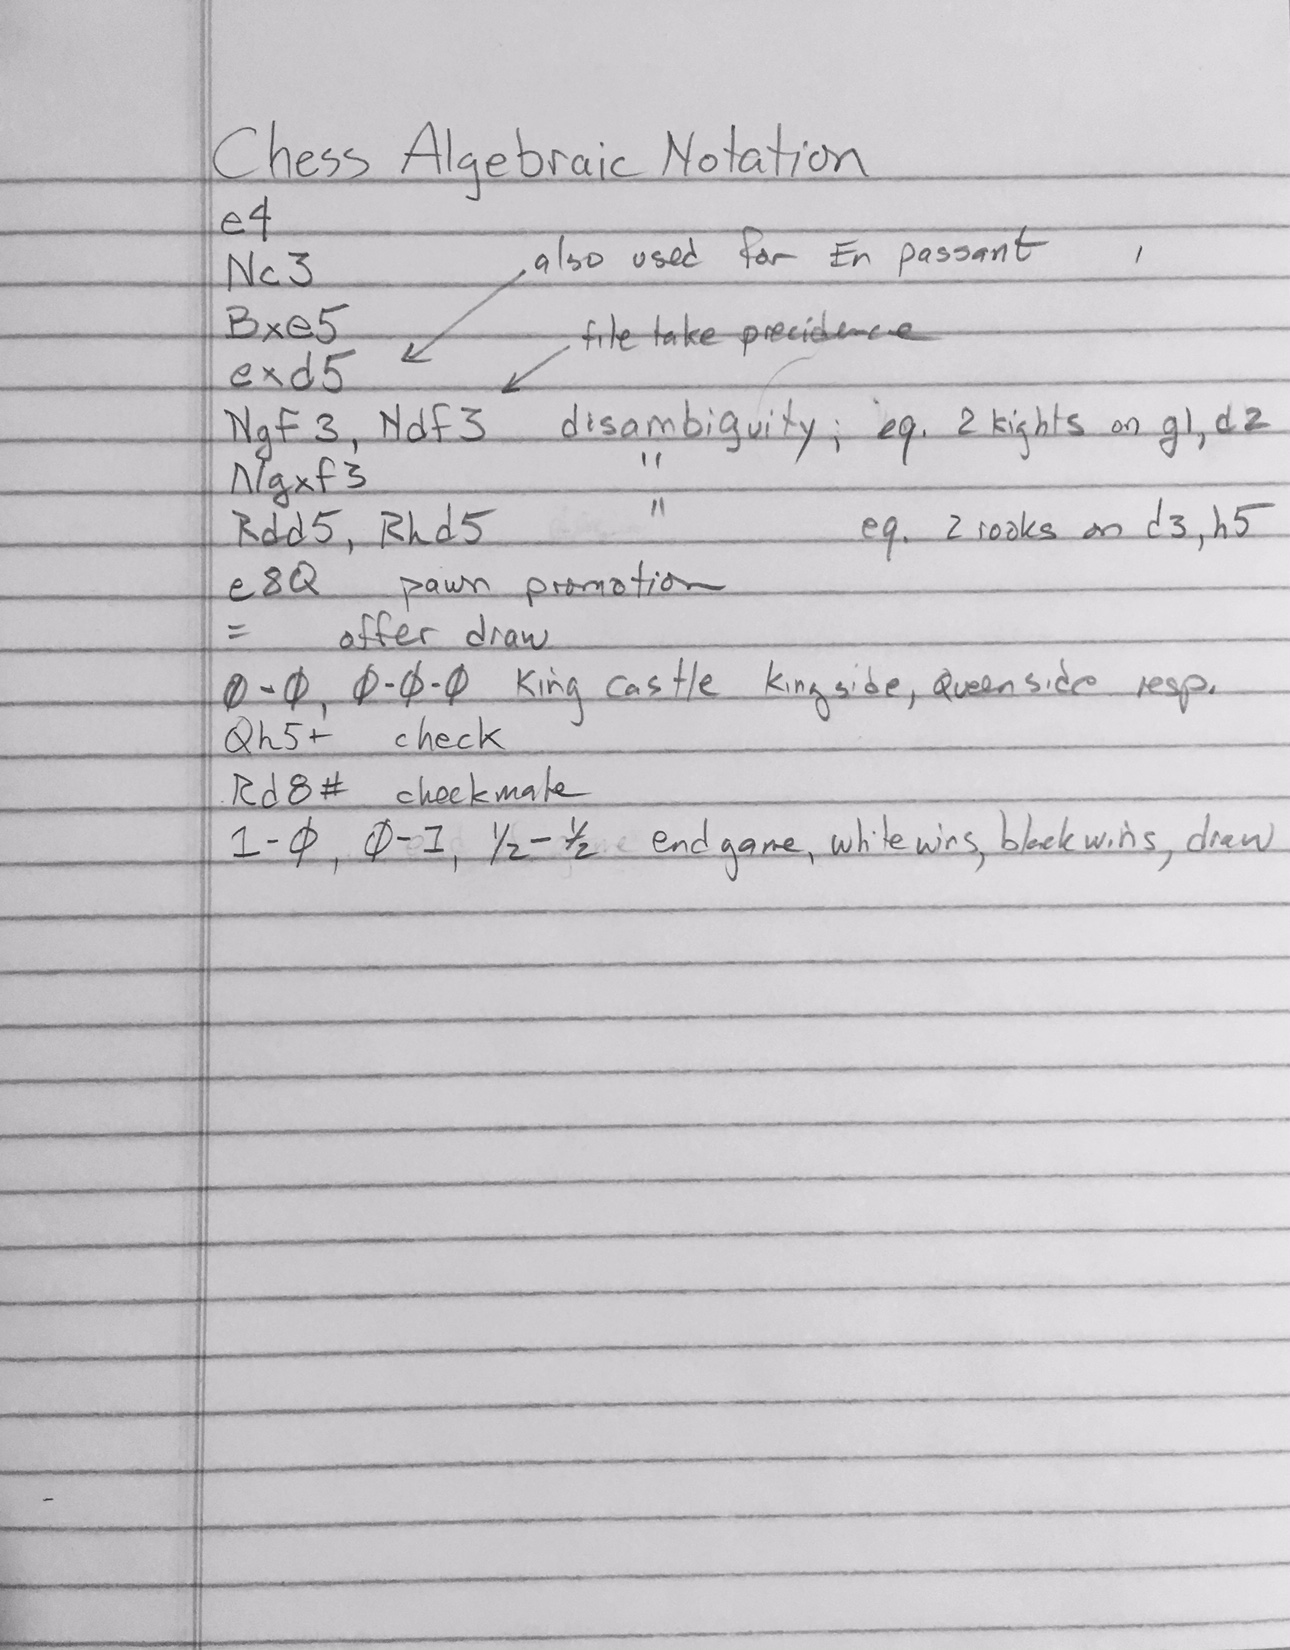 Chess Algebraic Notation
e4
also used for En passant
Nc3
Bxe5
file take precidence
exd5
Ngf3, Ndf3 disambiguity; eg. 2 kights on g1, d2
Ngxf3 "
Rdd5, Rhd5 " eg. 2 rooks on d3, h5
e8Q pawn promotion
= offer draw
0-0, 0-0-0 King castle kingside, Queenside resp.
Qh5+ check
Rd8# checkmate
1-0, 0-1, ½-½ endgame, white wins, black wins, draw